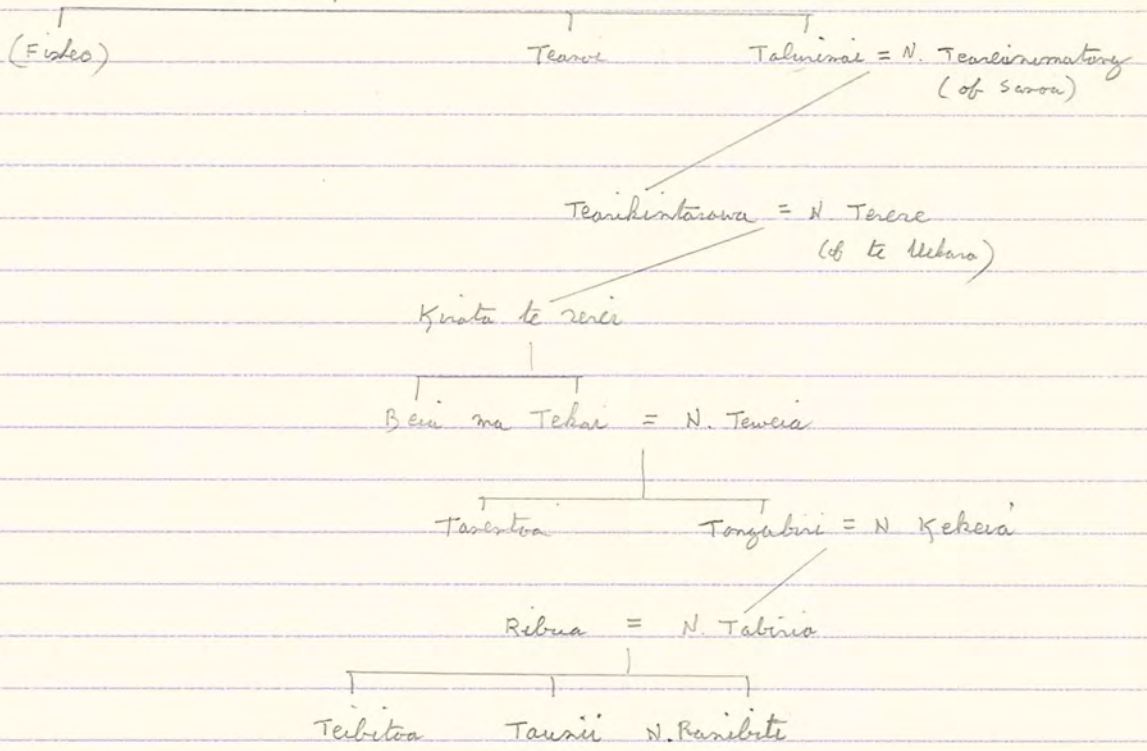 (Fisheo) Tearoi Taburimai = N. Teareinimatang
(of Samoa)
Tearikintarawa = N. Terere
(of te Uekara)
Kirata te rerei
Beia ma Tekai = N. Teweia
Tanentoa Tongabiri = N Kekeiá
Ribua = N. Tabiria
Teibitoa Taunii N. Ranibite